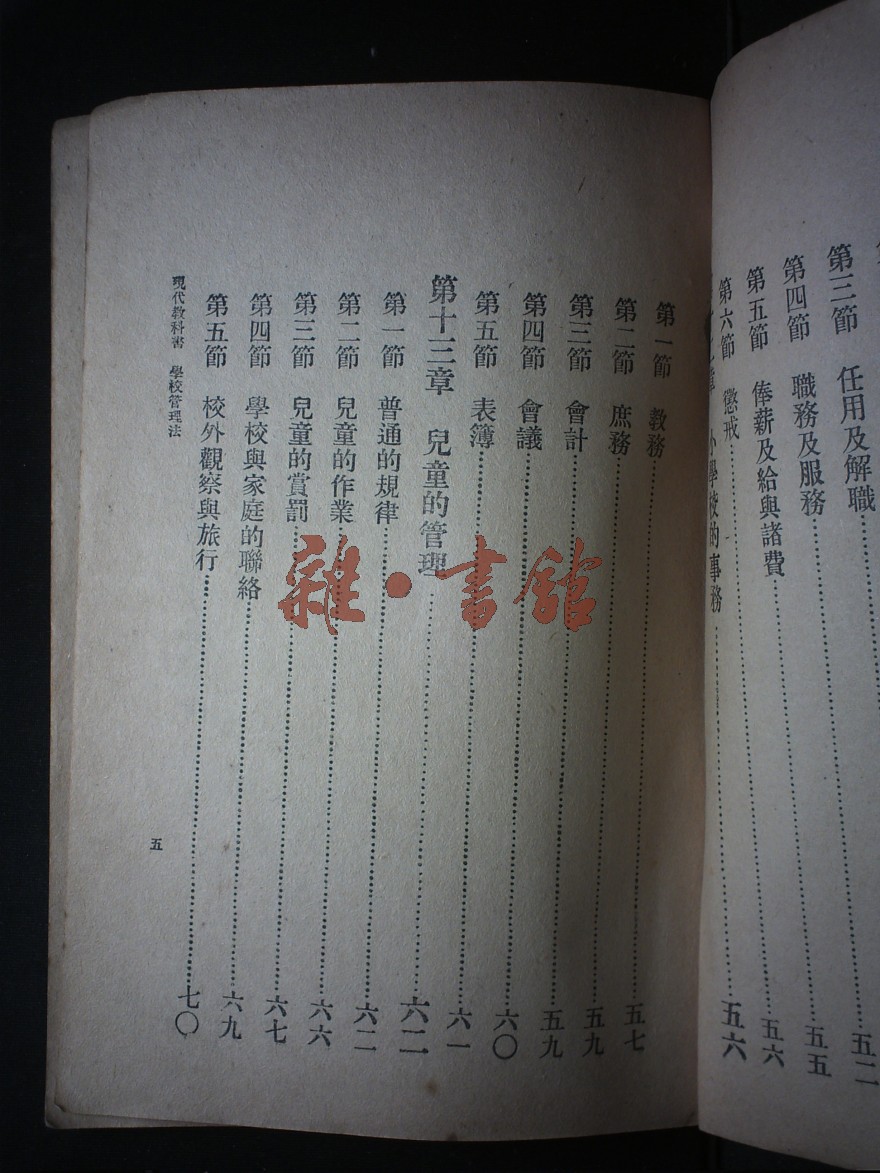 第三節 任用及解職……五二
第四節 職務及服務……五五
第五節 俸薪及給與諸費……五六
第六節 懲戒……五六
小學校的事務……
第一節 教務……五七
第二節 庶務……五九
第三節 會計……五九
第四節 會議……六〇
第五節 表簿……六一
第十三章 兒童的管理……六二
第一節 普通的規律……六二
第二節 兒童的作業……六六
第三節 兒童的賞罰……六七
第四節 學校與家庭的聯絡……六九
第五節 校外觀察與旅行……七〇
現代教科書 學校管理法
五
雜·書館